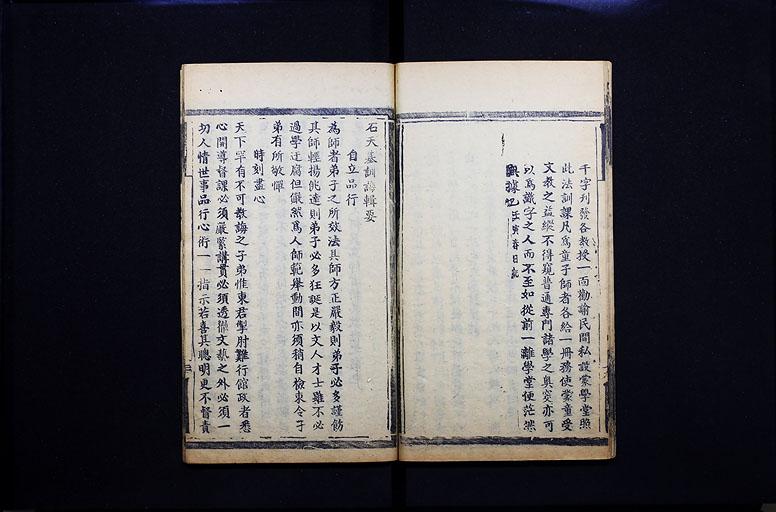 千字刋發各教授一面勸諭民間私設蒙學堂照
此法訓課凡爲童子師者各給一冊務使蒙童受
文教之益縱不得窺普通專門諸學之奥窔亦可
以爲識字之人而不至如從前一離學堂便茫然
據也壬寅春日
石天基訓誨輯要
自立品行
為師者弟子之所效法其師方正嚴毅則弟子必多謹飭
其師輕揚佻達則弟子必多狂誕是以文人才士雖不必
過學迂腐但儼然爲人師範舉動間亦須稍自檢束令子
弟有所敬憚
時刻盡心
天下罕有不可教誨之子弟惟東君掣肘難行館政者悉
心開導督課必須嚴緊講貫必須透徹文藝之外必須一
切人情世事品行心術一一指示若喜其聰明更不督責